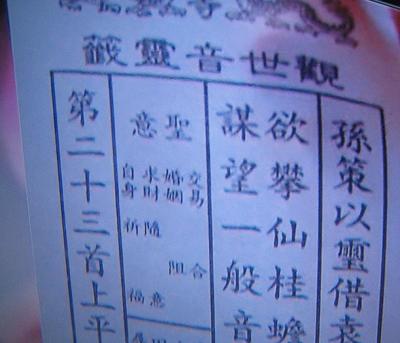 觀世音靈籤
孫策以璽借袁
欲攀仙桂蟾
謀望一般音
聖意
交易 合
婚姻 阻
求財 隨意
自身 祈福
第二十三首上平